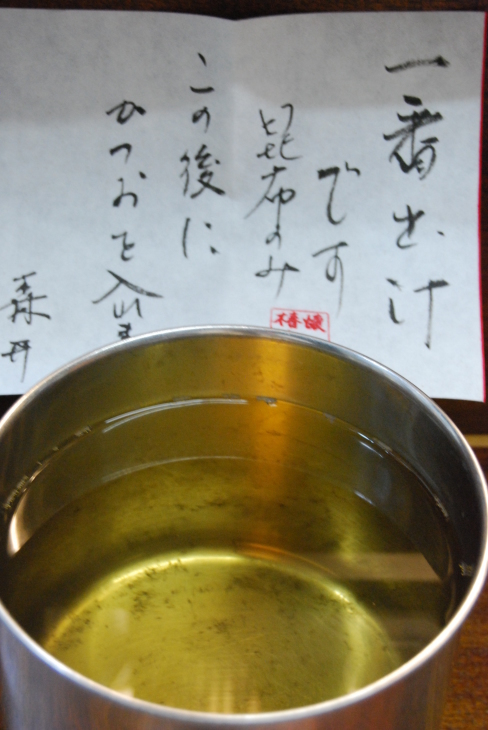 一番出汁
です
昆布のみ
この後に
かつおを入れま
森井